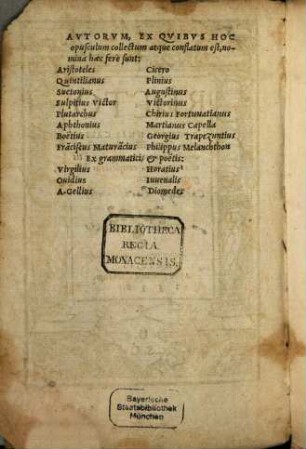 AVTORVM, EX QVIBVS HOC
opusculum collectum atque conflatum est, no-
mina hæc ferè sunt:
Aristoteles Cicero
Quintilianus Plinius
Suetonius Augustinus
Sulpitius Victor Victorinus
Plutarchus Chirius Fortunatianus
Aphthonius Martianus Capella
Boëtius Georgius Trapezuntius
Frãciscus Maturãcius Philippus Melanchthon
Ex grammaticis & poëtis:
Virgilius Horatius
Ouidius Iuuenalis
A. Gellius Diomedes
BIBLIOTHECA
REGIA
MONACENSIS.
Bayerische
Staatsbibliothek
München